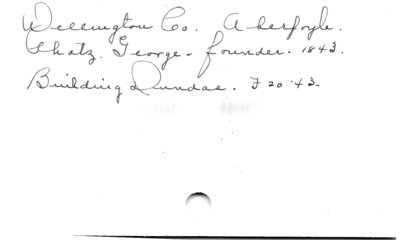 Wellington Co. Aberfoyle.
Schatz. George - founder. 1843.
Building Dundas. F 20 '43.